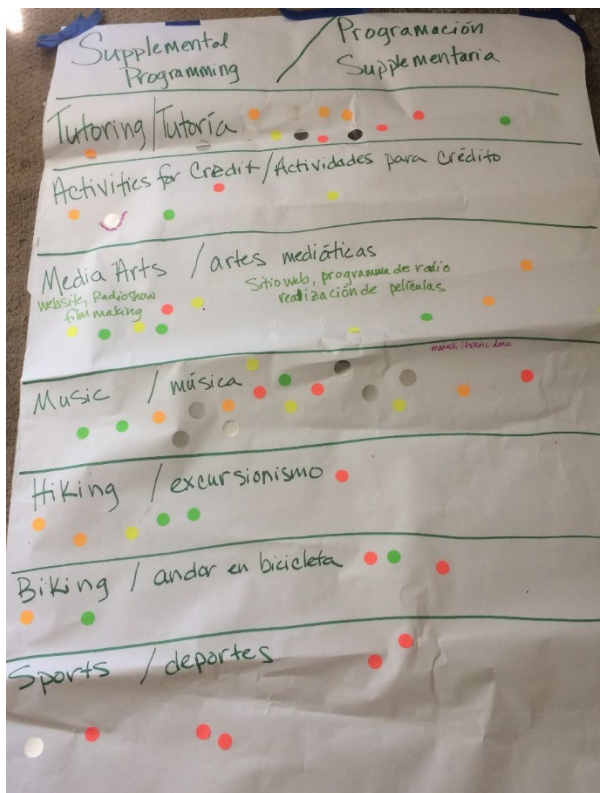 Supplemental / Programación
Programming Supplementaria
Tutoring/Tutoría
Activities for Credit/Actividades para crédito
Media Arts / artes mediáticas
website, Radioshow
film making
Sitio web, programma de radio
realización de películas
Music / música
Hiking / excursionismo
Biking / andar en bicicleta
Sports / deportes